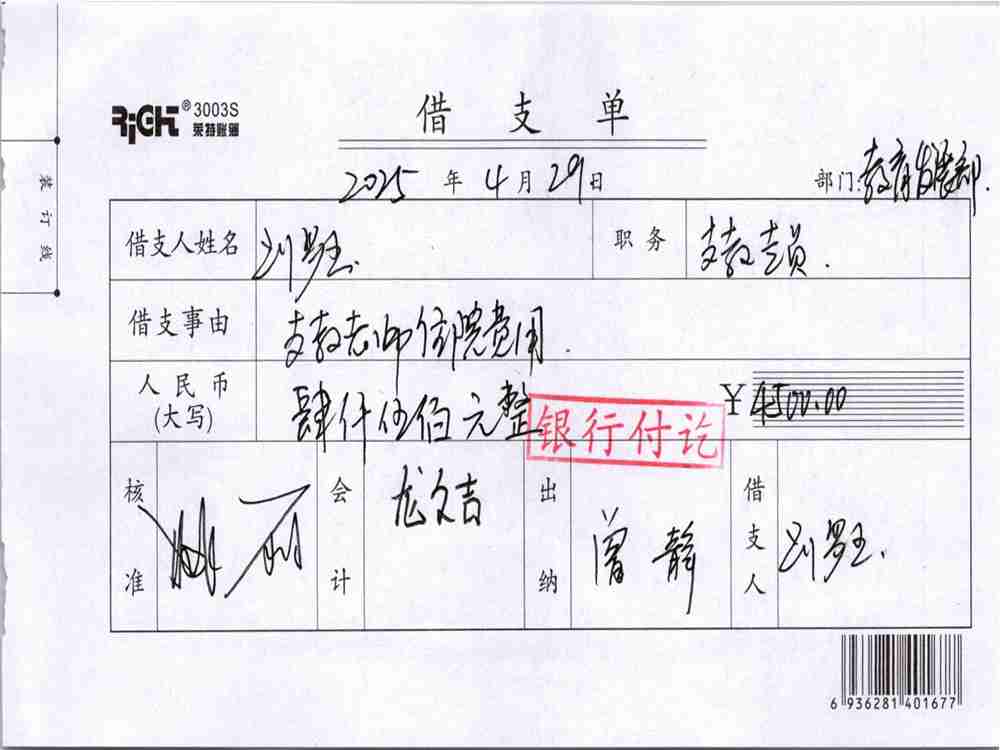 RIGHT® 3003S
莱特账簿
借支单
2025年4月29日
部门:教育发展部.
装订线
借支人姓名 刘
职务 支教老员.
借支事由 支教老师住院费用.
人民币(大写) 肆仟伍佰元整 ¥4500.00
银行付讫
核准
会计 龙文吉
出纳 曾静
借支人 刘
6 936281 401677